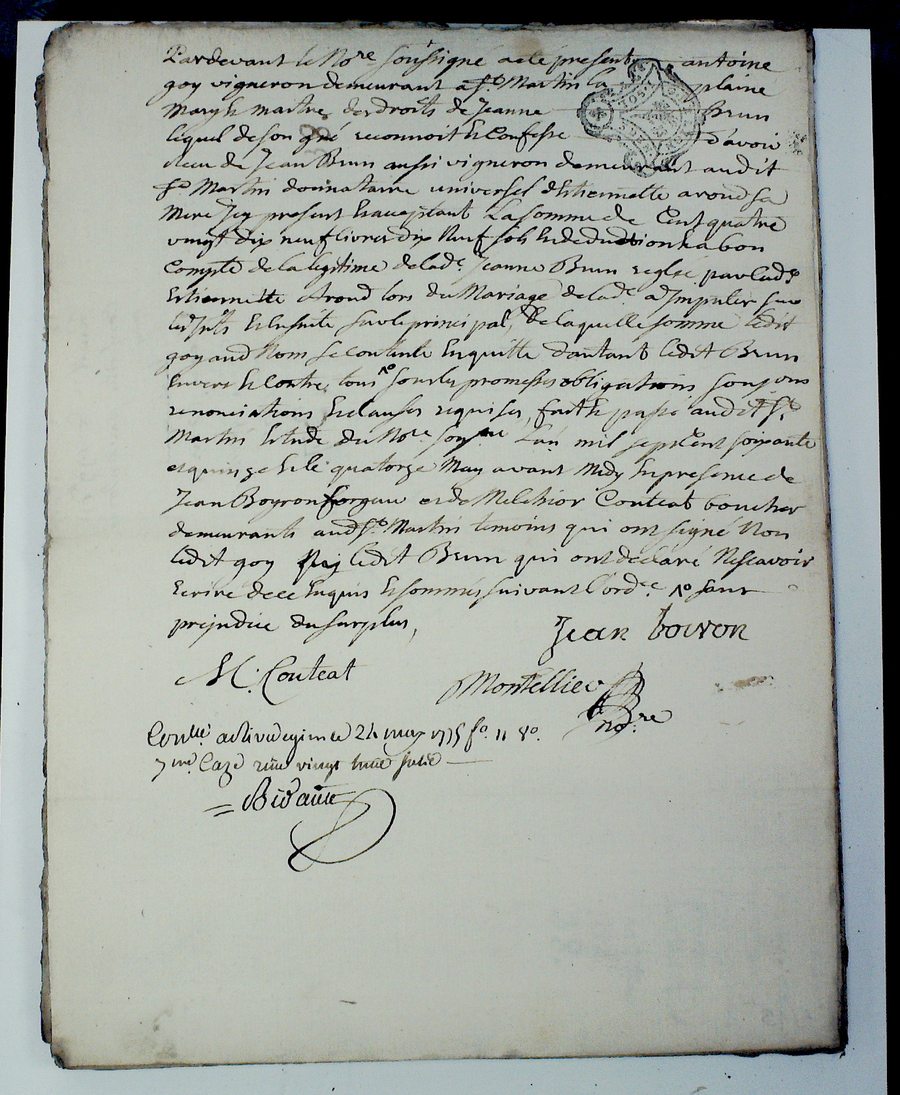 Pardevant le No.re soussigné a été present antoine
goy vigneron demeurant a St. Martin la plaine
Mary & maitre des droits de Jeanne Brun
lequel de son gré reconnoit & Confesse d'avoir
Receu de Jean Brun aussi vigneron demeurant audit
St. Martin donnataire universel d'Estiennette aroud sa
Mere Icy present & acceptant La somme de Cent quatre
vingt dix neuf livres dix Neuf sols & deduction & a bon
Compte de la legitime de lad.e Jeanne Brun reglée par lad.e
Estiennette Aroud lors du Mariage de lad.e a Imputer sur
les Ints & Ensuite sur le principal, de laquelle somme ledit
goy aud Nom se contente En quitte d'autant ledit Brun
Envers & Contre tous sous les promesses obligations soumons
renonciations & clauses requises, fait & passé audit St.
Martin Etude du No.re sousné L'an mil sept cent soixante
et quinze & le quatorze May avant Midy En presence de
Jean Boyron et de Melchior Conteat boucher
demeurants aud St. Martin temoins qui ont signé Non
ledit goy Ny ledit Brun qui ont declaré Ne scavoir
Ecrire de ce Enquis & sommés suivant l'ord.ce sans
prejudice du surplus,
Jean boiron
M. Conteat
Montellier
no.re
Con.llé a Rivedegier le 24 may 1775 fo. 11 Vo.
vingt huit